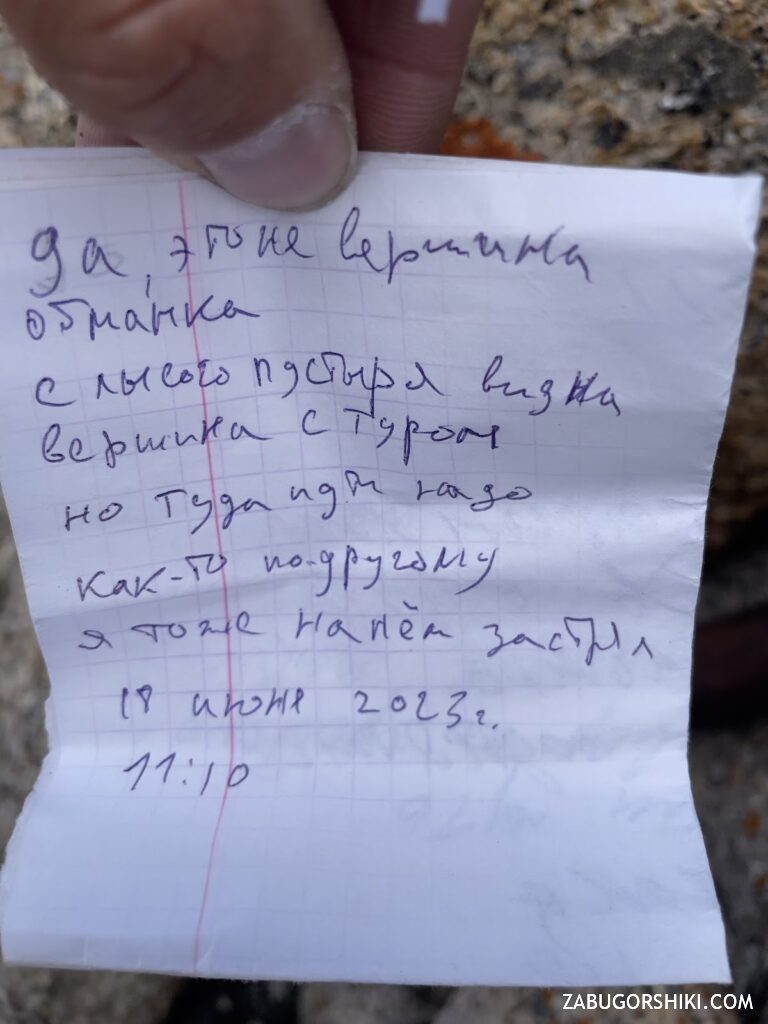 да, это не вершина
обманка
с лысого пустыря видна
вершина с туром
но туда идти надо
как-то по-другому
я тоже на нём застрял
18 июня 2023г.
11:10
ZABUGORSHIKI.COM